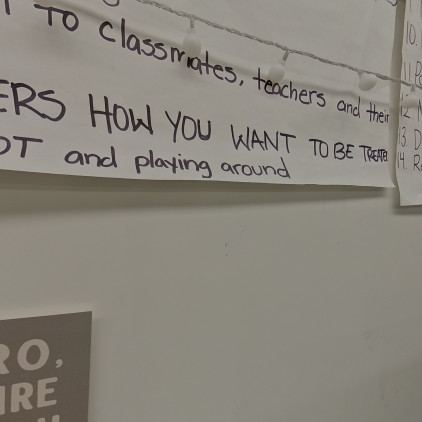 TO classmates, teachers and their
ERS HOW YOU WANT TO BE TREATED
OT and playing around
10.
11.
12.
13. D
14. R
RO,
IRE